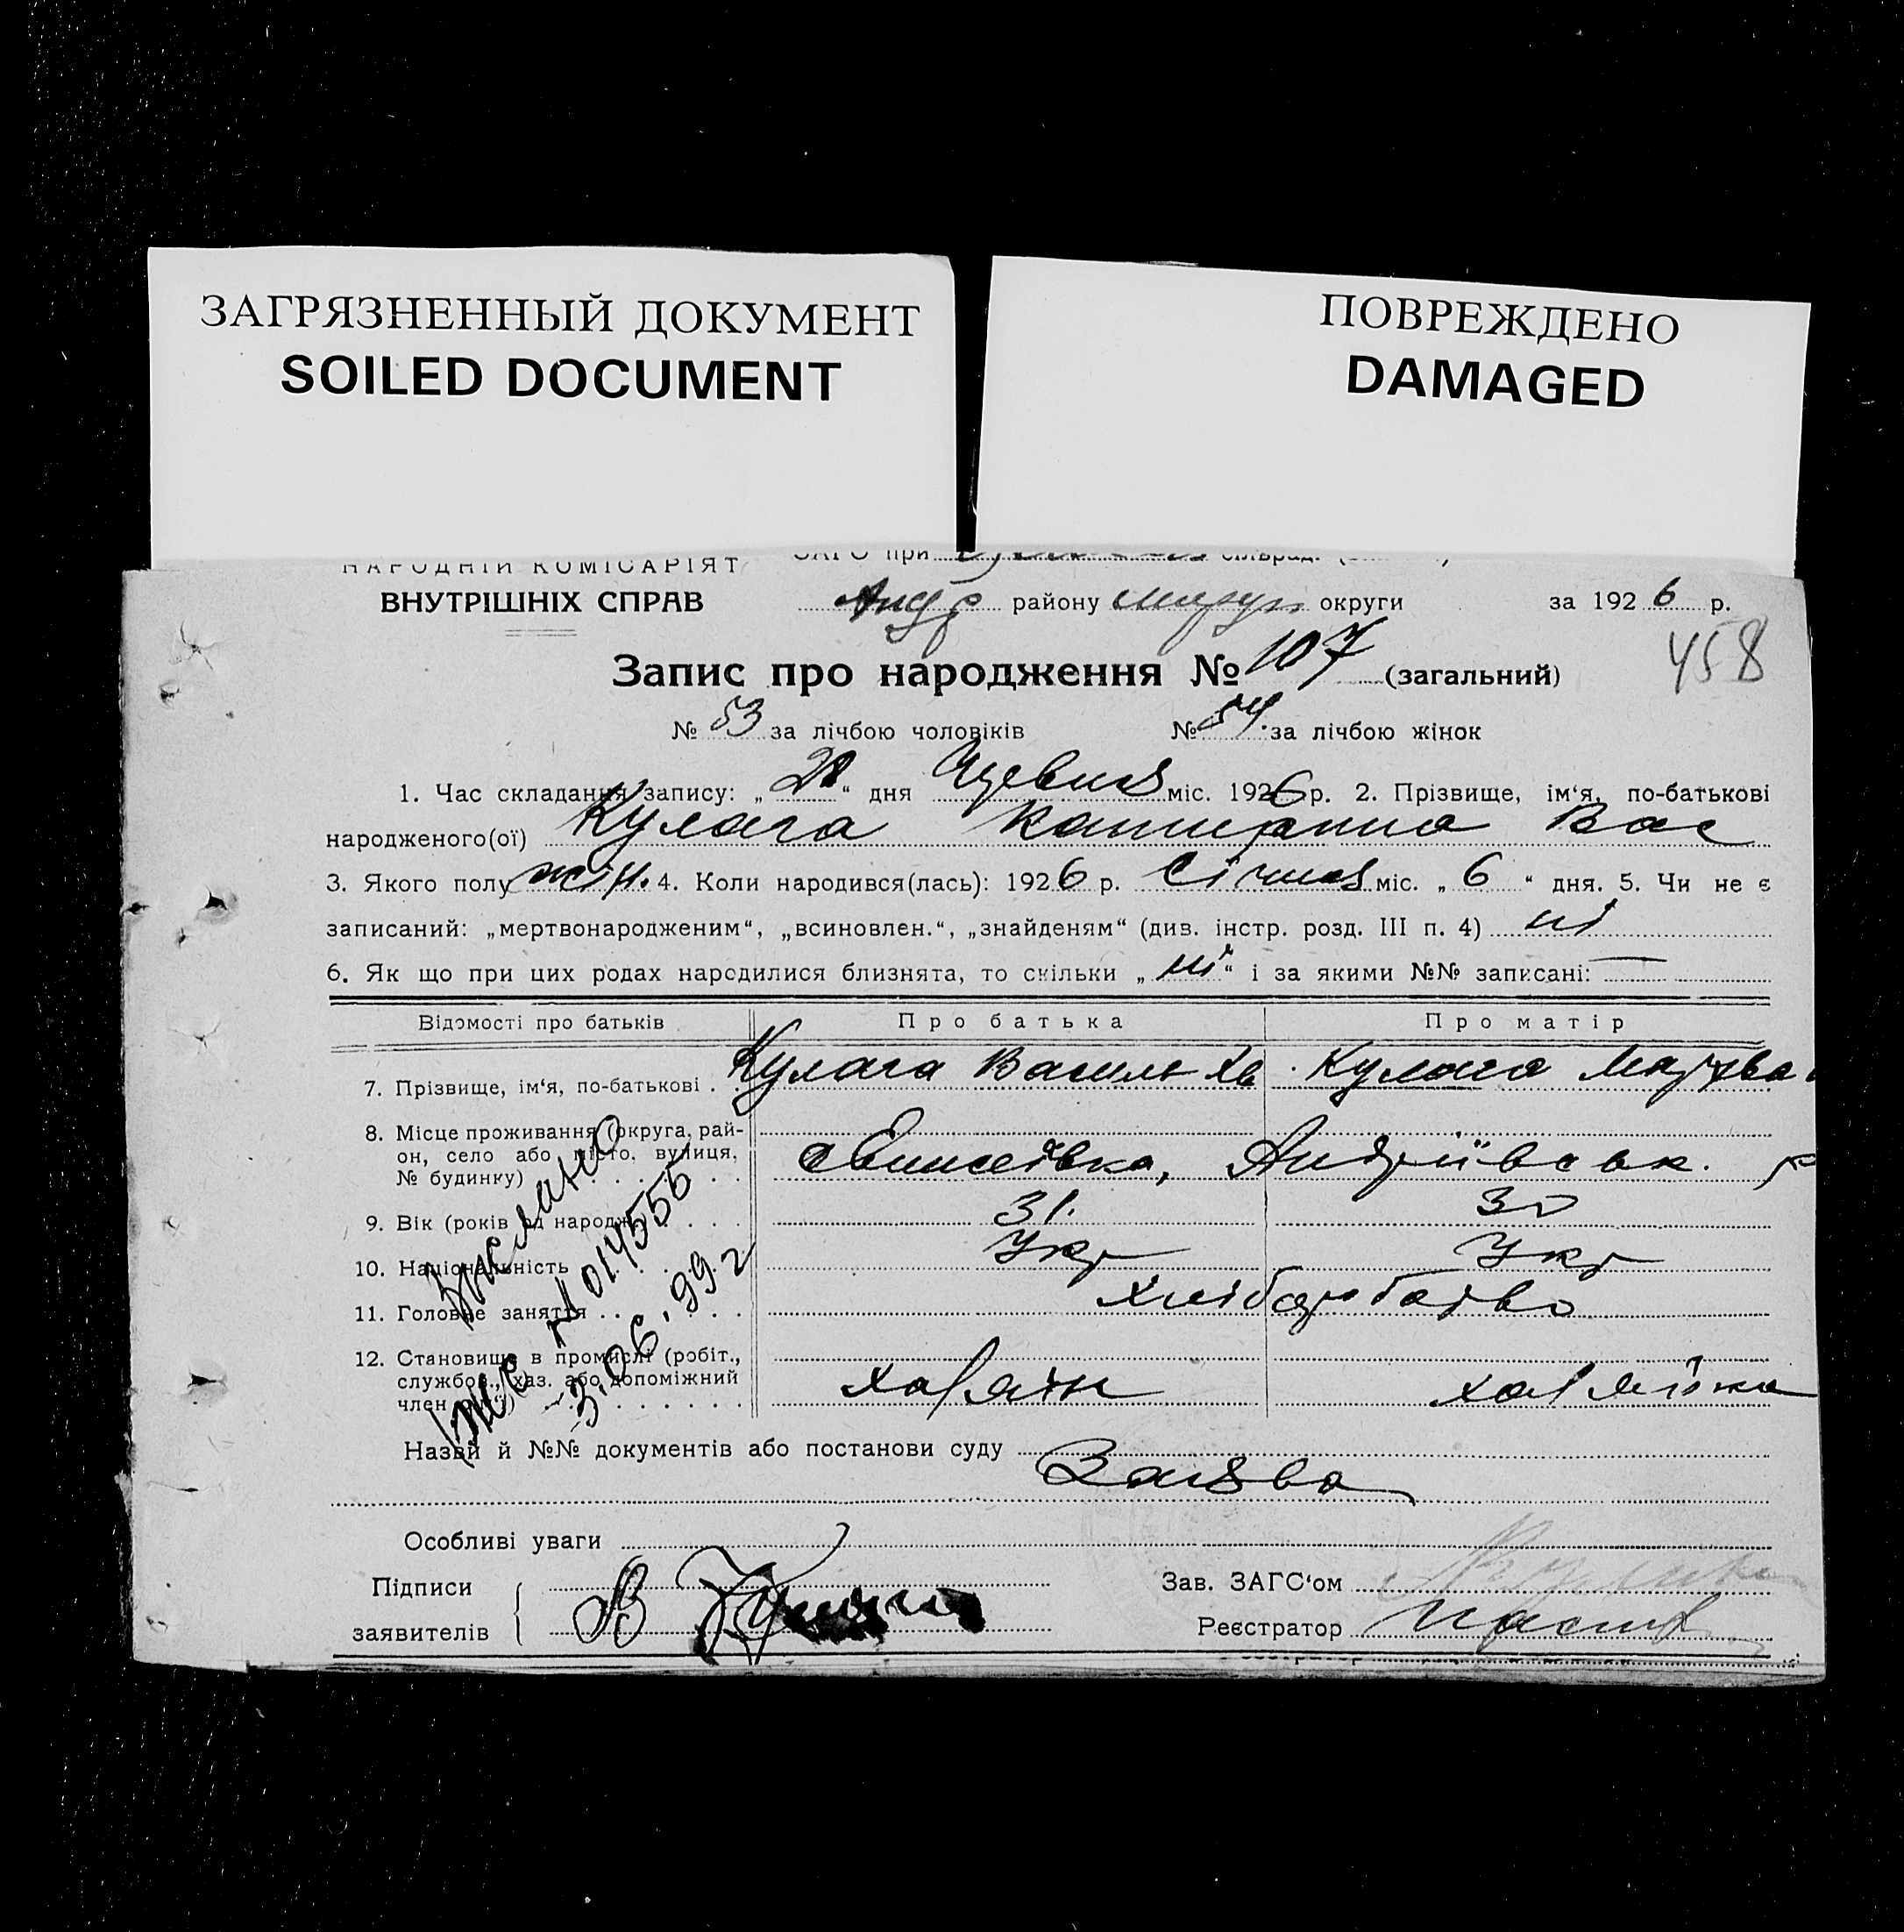 ЗАГРЯЗНЕННЫЙ ДОКУМЕНТ
SOILED DOCUMENT
ПОВРЕЖДЕНО
DAMAGED
НАРОДНІЙ КОМІСАРІЯТ
ВНУТРІШНІХ СПРАВ
ЗАГС при сільрад.
Андр району округи за 1926 р.
458
Запис про народження № 107 (загальний)
№ 53 за лічбою чоловіків № 54 за лічбою жінок
1. Час складання запису: „ “ дня Червня міс. 1926 р. 2. Прізвище, ім‘я, по-батькові
народженого(ої) Кулага Катерина Вас
3. Якого полу жін. 4. Коли народився(лась): 1926 р. Січня міс. „ 6 “ дня. 5. Чи не є
записаний: „мертвонародженим“, „всиновлен.“, „знайденям“ (див. інстр. розд. III п. 4) ні
6. Як що при цих родах народилися близнята, то скільки „ ні “ і за якими №№ записані: —
Відомості про батьків Про батька Про матір
7. Прізвище, ім‘я, по-батькові . Кулага Василь Кулага
8. Місце проживання (округа, рай-
он, село або місто, вулиця,
№ будинку) Андріївськ. р
9. Вік (років од народж.) 31. 30
10. Національність Укр Укр
11. Головне заняття Хліборобство
12. Становище в промислі (робіт.,
службов., хаз. або допоміжний
член
Назви й №№ документів або постанови суду
Заява
Особливі уваги
Підписи
заявителів
В Кулага
Зав. ЗАГС‘ом
Реєстратор
№ 014555
3.06.99 г